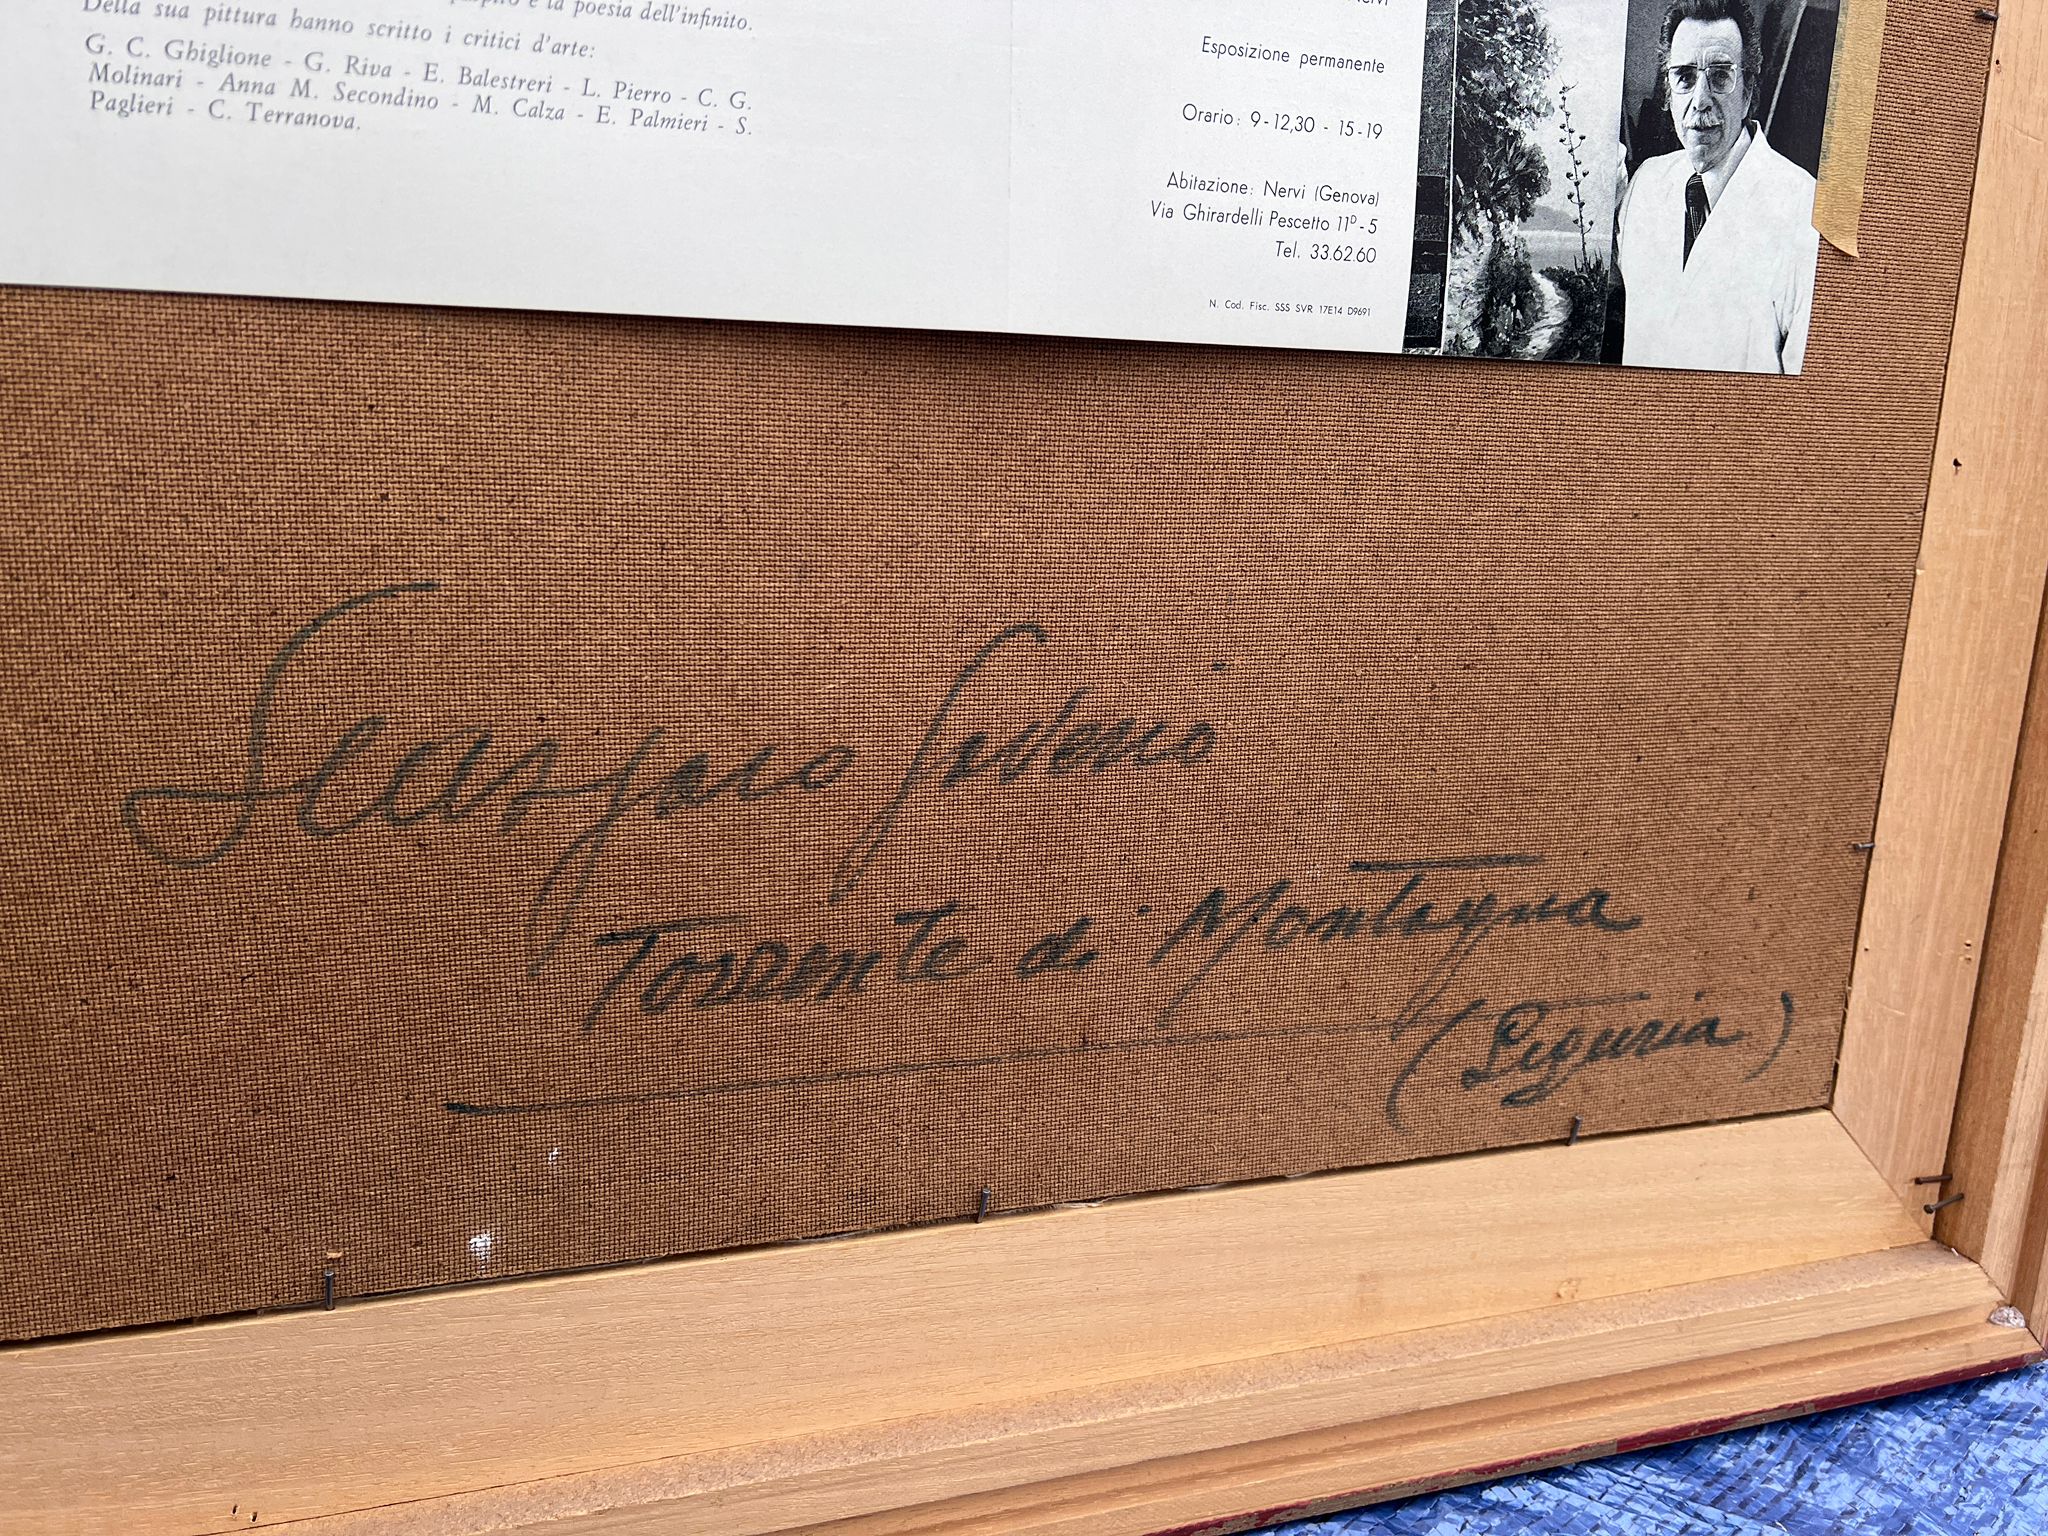 e la poesia dell'infinito.
Della sua pittura hanno scritto i critici d'arte:
G. C. Ghiglione - G. Riva - E. Balestreri - L. Pierro - C. G.
Molinari - Anna M. Secondino - M. Calza - E. Palmieri - S.
Paglieri - C. Terranova.
Nervi
Esposizione permanente
Orario: 9-12,30 - 15-19
Abitazione: Nervi (Genova)
Via Ghirardelli Pescetto 11D-5
Tel. 33.62.60
N. Cod. Fisc. SSS SVR 17E14 D969I
Seassaro Saverio
Torrente di Montagna
(Liguria)